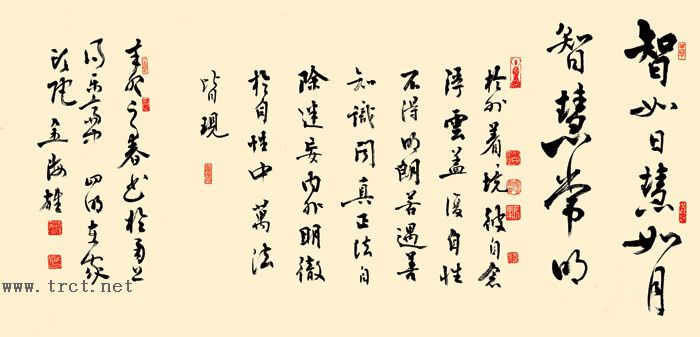 智如日慧如月
智慧常明
於外着境被自念
浮雲蓋覆自性
不得明朗若遇善
知識聞真正法自
除迷妄內外明徹
於自性中萬法
皆現
之春書於甬上
四明在家
頭陀
www.trct.net